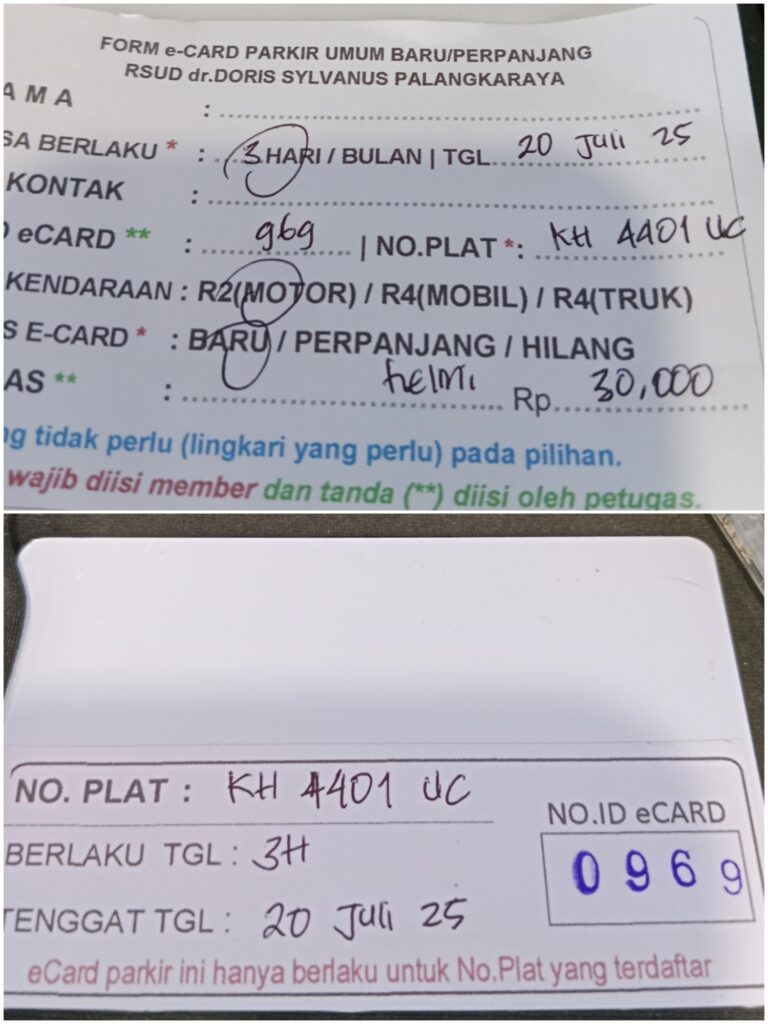 FORM e-CARD PARKIR UMUM BARU/PERPANJANG
RSUD dr.DORIS SYLVANUS PALANGKARAYA
AMA :
SA BERLAKU * : 3 HARI / BULAN | TGL. 20 Juli 25
KONTAK :
eCARD ** : 969 | NO.PLAT *: KH 4401 UC
KENDARAAN : R2(MOTOR) / R4(MOBIL) / R4(TRUK)
S E-CARD * : BARU / PERPANJANG / HILANG
AS ** : helmi Rp. 30,000
ng tidak perlu (lingkari yang perlu) pada pilihan.
wajib diisi member dan tanda (**) diisi oleh petugas.
NO. PLAT : KH 4401 UC
NO.ID eCARD
0969
BERLAKU TGL : 3H
TENGGAT TGL : 20 Juli 25
eCard parkir ini hanya berlaku untuk No.Plat yang terdaftar